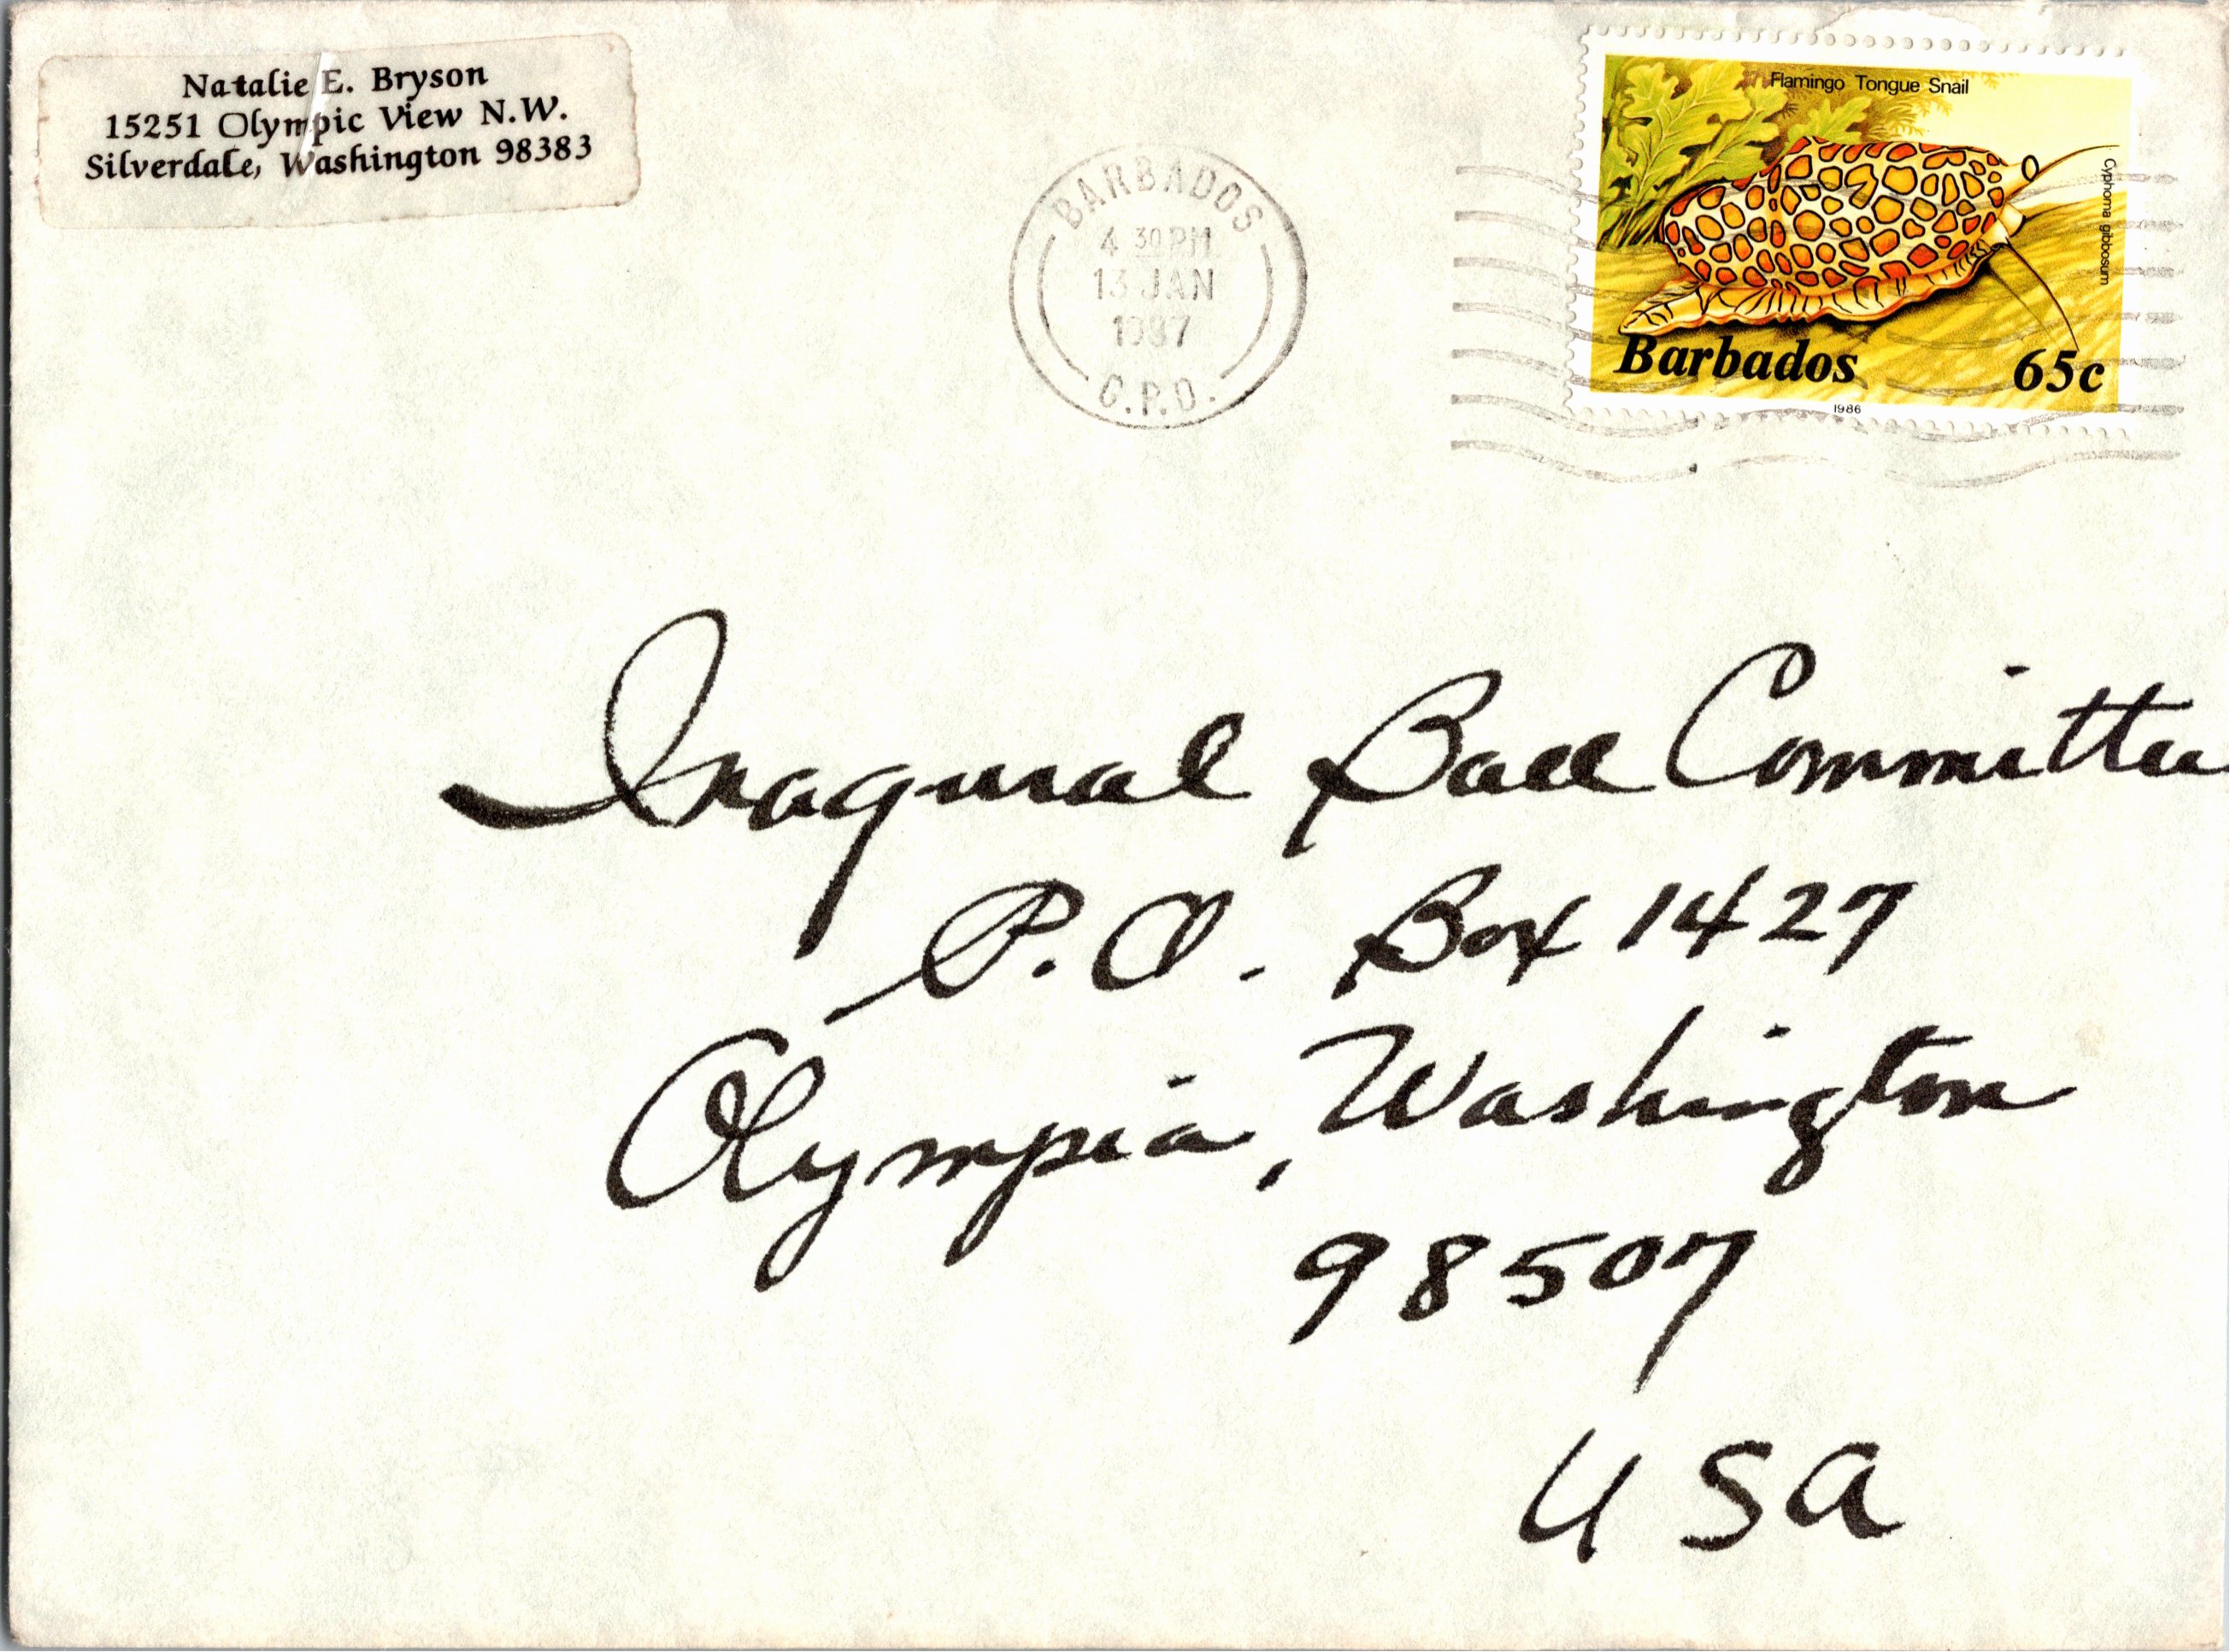 Natalie E. Bryson
15251 Olympic View N.W.
Silverdale, Washington 98383
BARBADOS
4 30 PM
13 JAN
1987
G.P.O.
Flamingo Tongue Snail
Cyphoma gibbosum
Barbados 65c
1986
Inagural Ball Committee
P.O. Box 1427
Olympia, Washington
98507
USA